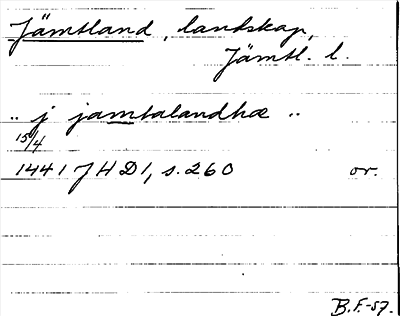 Jämtland, landskap,
Jämtl. l.
„ j jamtalandhæ „
15/4
1441 JHD1, s. 260 or.
B.F.-57.